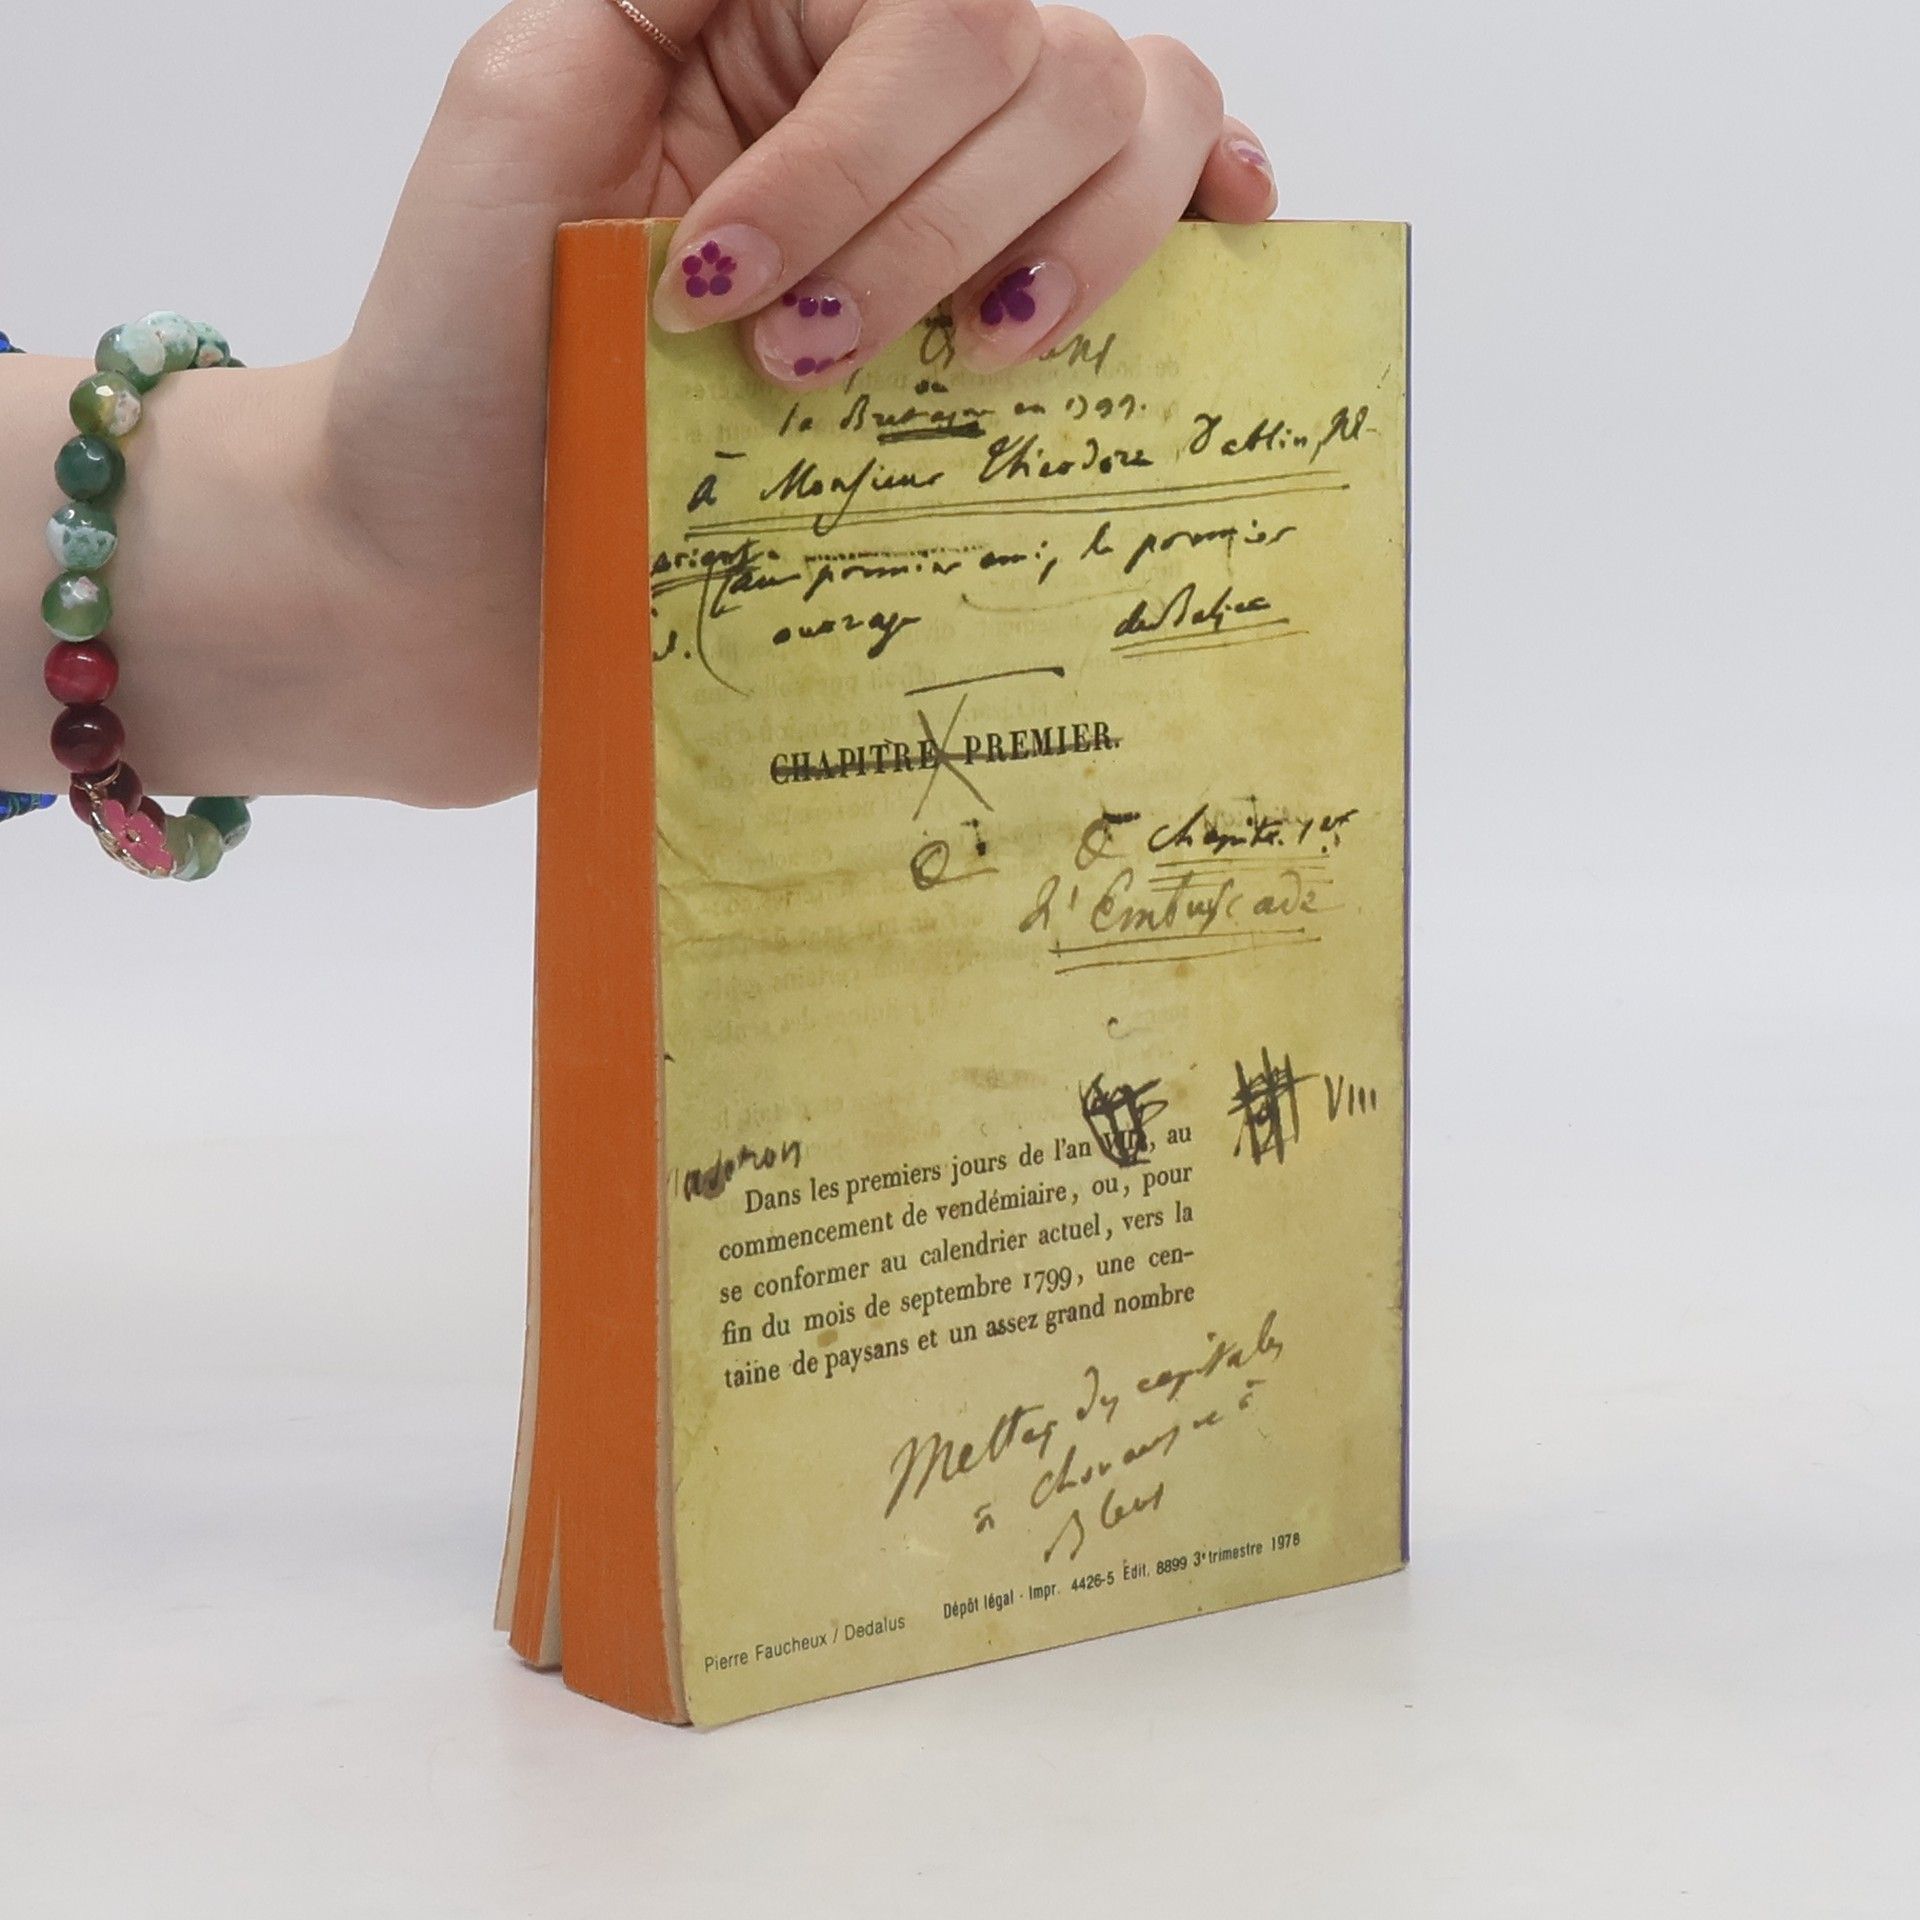 ou
la Bretagne en 1799.
à Monsieur Théodore Dablin,
au premier ami, le premier
ouvrage
de Balzac
CHAPITRE PREMIER.
Chapitre 1er
L'Embuscade
VIII
Dans les premiers jours de l'an VIII, au
commencement de vendémiaire, ou, pour
se conformer au calendrier actuel, vers la
fin du mois de septembre 1799, une cen-
taine de paysans et un assez grand nombre
Mettez des capitales
à chouans et à
Bleus
Pierre Faucheux / Dedalus Dépôt légal - Impr. 4426-5 Édit. 8899 3e trimestre 1978